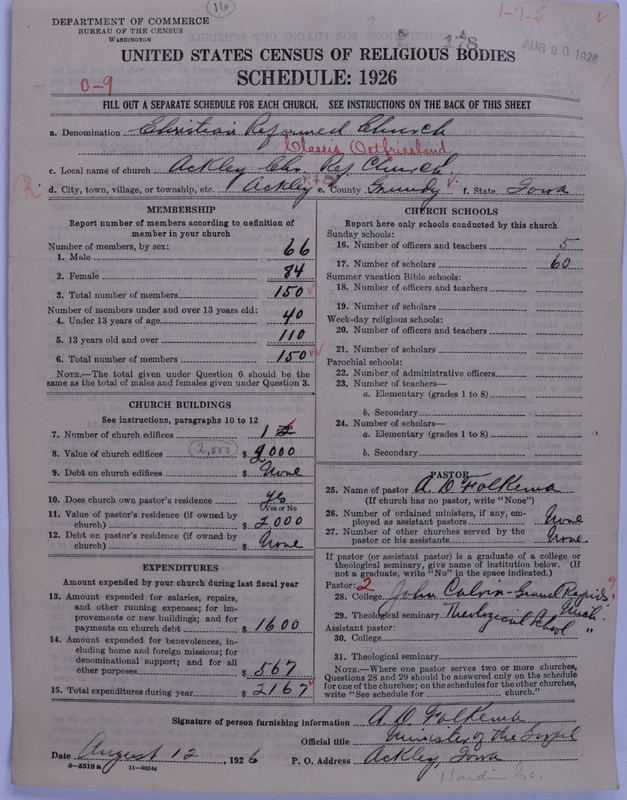 16
1-7-5
v
DEPARTMENT OF COMMERCE
BUREAU OF THE CENSUS
WASHINGTON
178
AUG 20 1926
UNITED STATES CENSUS OF RELIGIOUS BODIES
SCHEDULE: 1926
0-9
FILL OUT A SEPARATE SCHEDULE FOR EACH CHURCH. SEE INSTRUCTIONS ON THE BACK OF THIS SHEET
a. Denomination Christian Reformed Church
Classis Ostfriesland
c. Local name of church Ackley Chr. Ref. Church.
d. City, town, village, or township, etc. Ackley e. County Grundy f. State Iowa
MEMBERSHIP
Report number of members according to definition of
member in your church
Number of members, by sex:
1. Male 66
2. Female 84
3. Total number of members 150
Number of members under and over 13 years old:
4. Under 13 years of age 40
5. 13 years old and over 110
6. Total number of members 150
NOTE.—The total given under Question 6 should be the
same as the total of males and females given under Question 3.
CHURCH BUILDINGS
See instructions, paragraphs 10 to 12
7. Number of church edifices 1
8. Value of church edifices (2,000) $ 2000
9. Debt on church edifices $ None
10. Does church own pastor's residence yes
(Yes or No)
11. Value of pastor's residence (if owned by
church) $ 2000
12. Debt on pastor's residence (if owned by
church) $ None
EXPENDITURES
Amount expended by your church during last fiscal year
13. Amount expended for salaries, repairs,
and other running expenses; for im-
provements or new buildings; and for
payments on church debt $ 1600
14. Amount expended for benevolences, in-
cluding home and foreign missions; for
denominational support; and for all
other purposes $ 567
15. Total expenditures during year $ 2167
CHURCH SCHOOLS
Report here only schools conducted by this church
Sunday schools:
16. Number of officers and teachers 5
17. Number of scholars 60
Summer vacation Bible schools:
18. Number of officers and teachers
19. Number of scholars
Week-day religious schools:
20. Number of officers and teachers
21. Number of scholars
Parochial schools:
22. Number of administrative officers
23. Number of teachers—
a. Elementary (grades 1 to 8)
b. Secondary
24. Number of scholars—
a. Elementary (grades 1 to 8)
b. Secondary
PASTOR
25. Name of pastor A. D. Folkema
(If church has no pastor, write "None")
26. Number of ordained ministers, if any, em-
ployed as assistant pastors None
27. Number of other churches served by the
pastor or his assistants None.
If pastor (or assistant pastor) is a graduate of a college or
theological seminary, give name of institution below. (If
not a graduate, write "No" in the space indicated.)
Pastor: 2
28. College John Calvin - Grand Rapids ?
Mich.
29. Theological seminary Theological School "
Assistant pastor:
30. College
31. Theological seminary
NOTE.—Where one pastor serves two or more churches,
Questions 28 and 29 should be answered only on the schedule
for one of the churches; on the schedules for the other churches,
write "See schedule for ______ church."
Signature of person furnishing information A. D. Folkema
Official title Minister of the Gospel
Date August 12, 1926 P. O. Address Ackley, Iowa
8-5518a 11-9054a
Hardin Co.